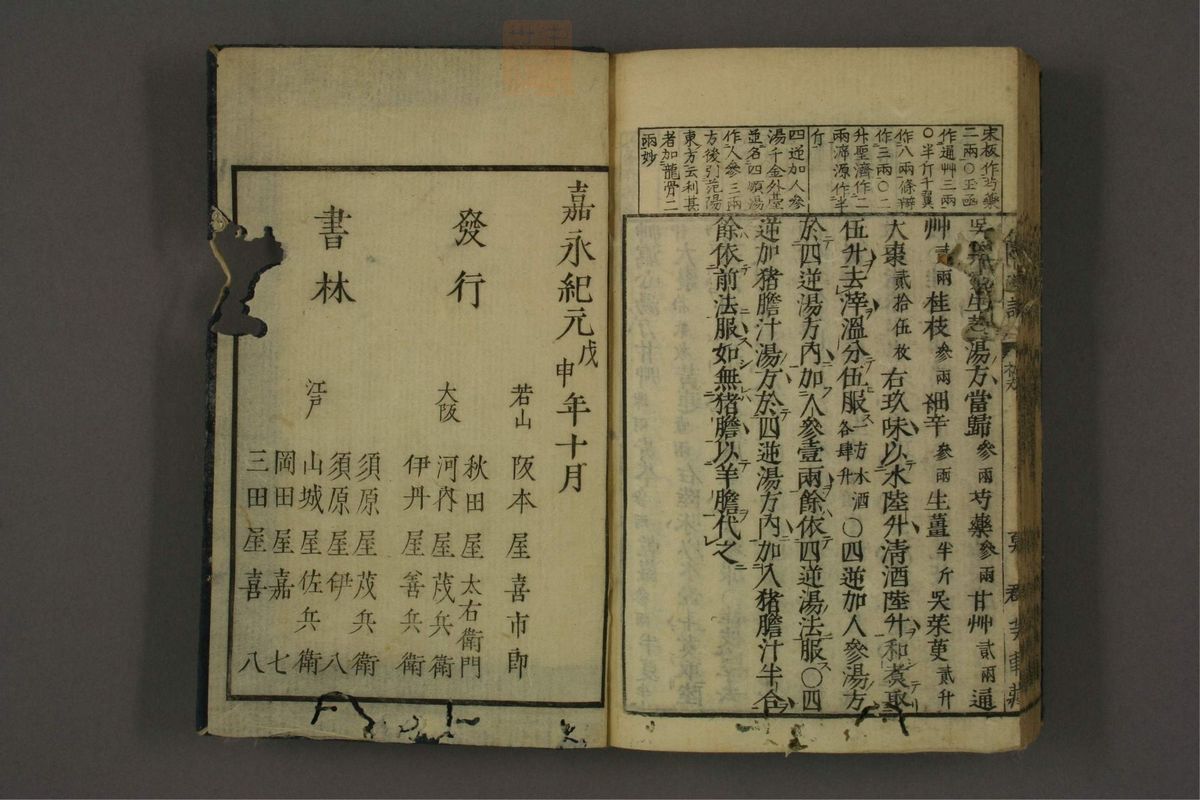 宋板作芍藥
二兩〇玉函
作通艸三兩
〇半斤千翼
作八兩條辨
作三兩〇二
升聖濟作二
兩溯源作半
斤
四逆加人參
湯千金外臺
並名四順湯
作人參三兩
方後引范陽
東方云利甚
者加龍骨二
兩妙
吳茱萸生薑湯方當歸參兩芍藥參兩甘艸貳兩通
艸貳兩桂枝參兩細辛參兩生薑半斤吳茱萸貳升
大棗貳拾伍枚右玖味以水陸升清酒陸升和煮取
伍升去滓溫分伍服一方水酒各肆升〇四逆加人參湯方
於四逆湯方內加人參壹兩餘依四逆湯法服〇四
逆加猪膽汁湯方於四逆湯方內加入猪膽汁半合
餘依前法服如無猪膽以羊膽代之
嘉永紀元戊申年十月
發行
書林
若山 阪本屋喜市郎
大阪 秋田屋太右衛門
河內屋茂兵衛
伊丹屋善兵衛
江戶 須原屋茂兵衛
須原屋伊八
山城屋佐兵衛
岡田屋嘉七
三田屋喜八